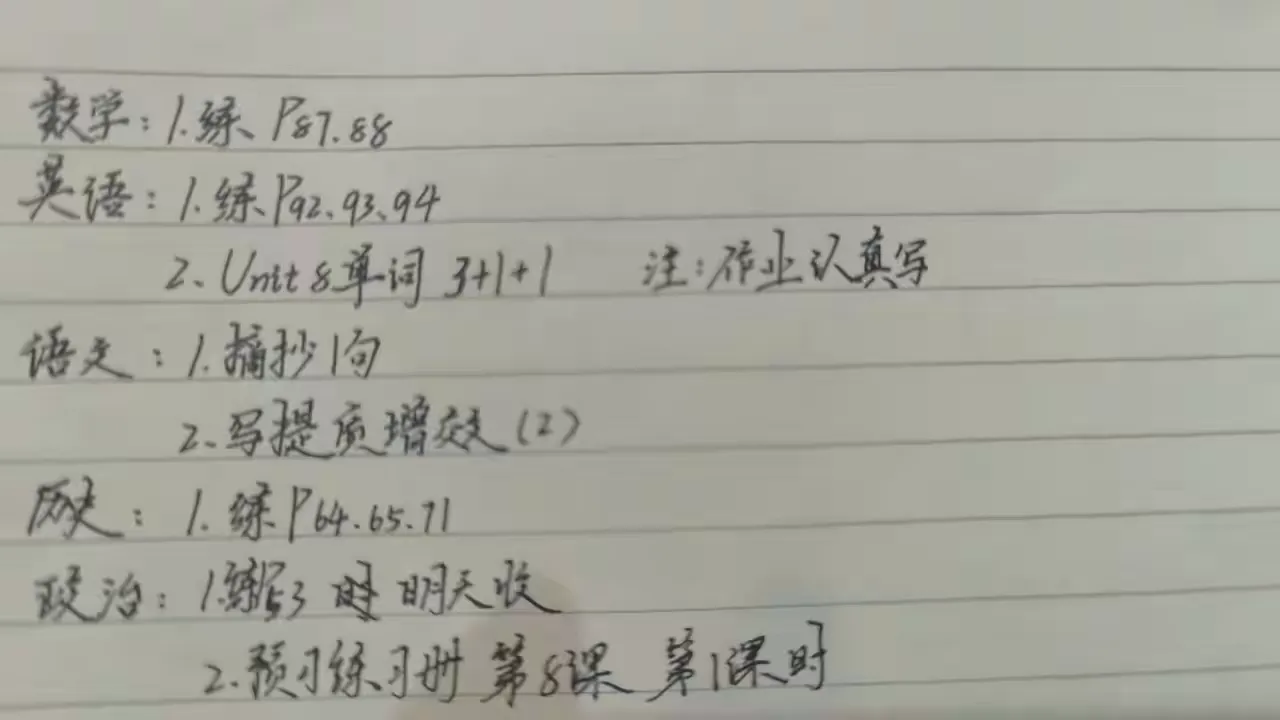 数学：1.练 P87.88
英语：1.练P92、93、94
2、Unit 8单词 3+1+1 注：作业认真写
语文：1.摘抄1句
2、写提质增效(2)
历史：1.练P64.65.71
政治：1.练P53 明天收
2.预习练习册 第8课 第1课时